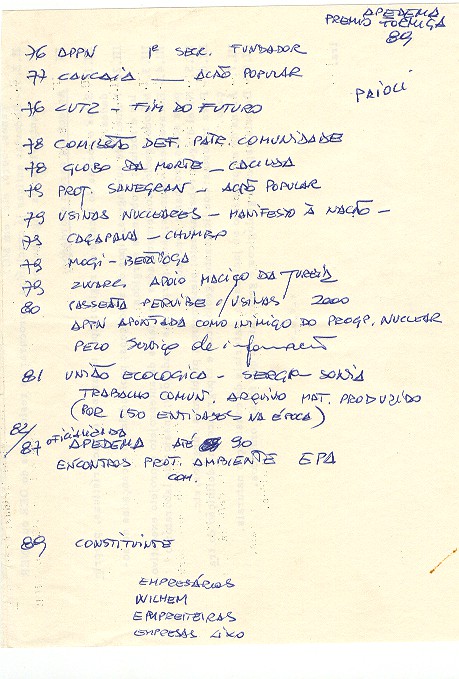 APEDEMA
PREMIO FORMIGA
89
76 APPN 1º SECR. FUNDADOR
77 CAUCAIA — AÇÃO POPULAR
PAIOLI
76 LUTZ - FIM DO FUTURO
78 COMISSÃO DEF. PATR. COMUNIDADE
78 GLOBO DA MORTE - CACILDA
79 PROT. SANEGRAN - AÇÃO POPULAR
79 USINAS NUCLEARES - MANIFESTO À NAÇÃO -
79 CAÇAPAVA - CHUMBO
79 MOGI - BERTIOGA
79 ZWARG. APOIO MACIÇO DA
80 PASSEATA PERUIBE C/USINAS 2000
APPN APONTADA COMO INIMIGO DO PROGR. NUCLEAR
PELO Serviço de informação
81 UNIÃO ECOLOGICA - SERGIO SONIA
TRABALHO COMUN. ARQUIVO MAT. PRODUZIDO
(POR 150 ENTIDADES NA ÉPOCA)
82/87 oficializada
APEDEMA ATÉ 90
ENCONTROS PROT. AMBIENTE EPA
COM.
89 CONSTITUINTE
EMPRESÁRIOS
WILHEM
EMPREITEIRAS
EMPRESAS LIXO